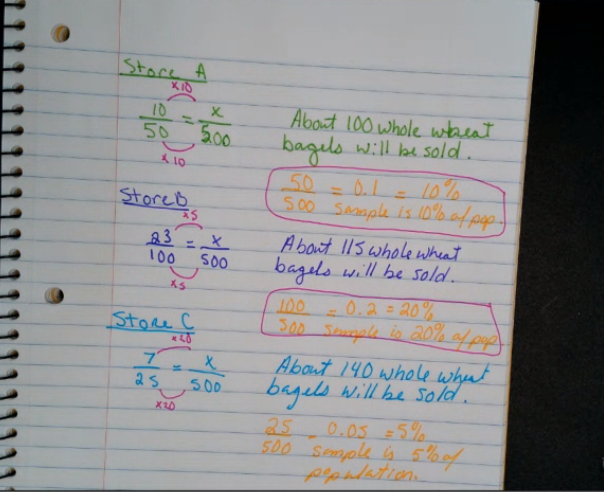 Store A
x10
10/50 = x/500
x10
About 100 whole wheat
bagels will be sold.
50/500 = 0.1 = 10%
sample is 10% of pop.
Store B
x5
23/100 = x/500
x5
About 115 whole wheat
bagels will be sold.
100/500 = 0.2 = 20%
sample is 20% of pop
Store C
x20
7/25 = x/500
x20
About 140 whole wheat
bagels will be sold.
25/500 = 0.05 = 5%
sample is 5% of
population.